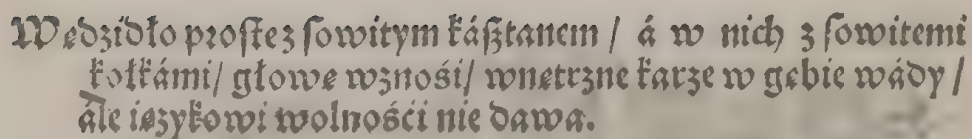 Wędzidło proſte z ſowitym káſztanem / á w nich z ſowitemi
kołkámi / głowę wznośi / wnętrzne karze w gębie wády /
ále ięzykowi wolnośći nie dawa.